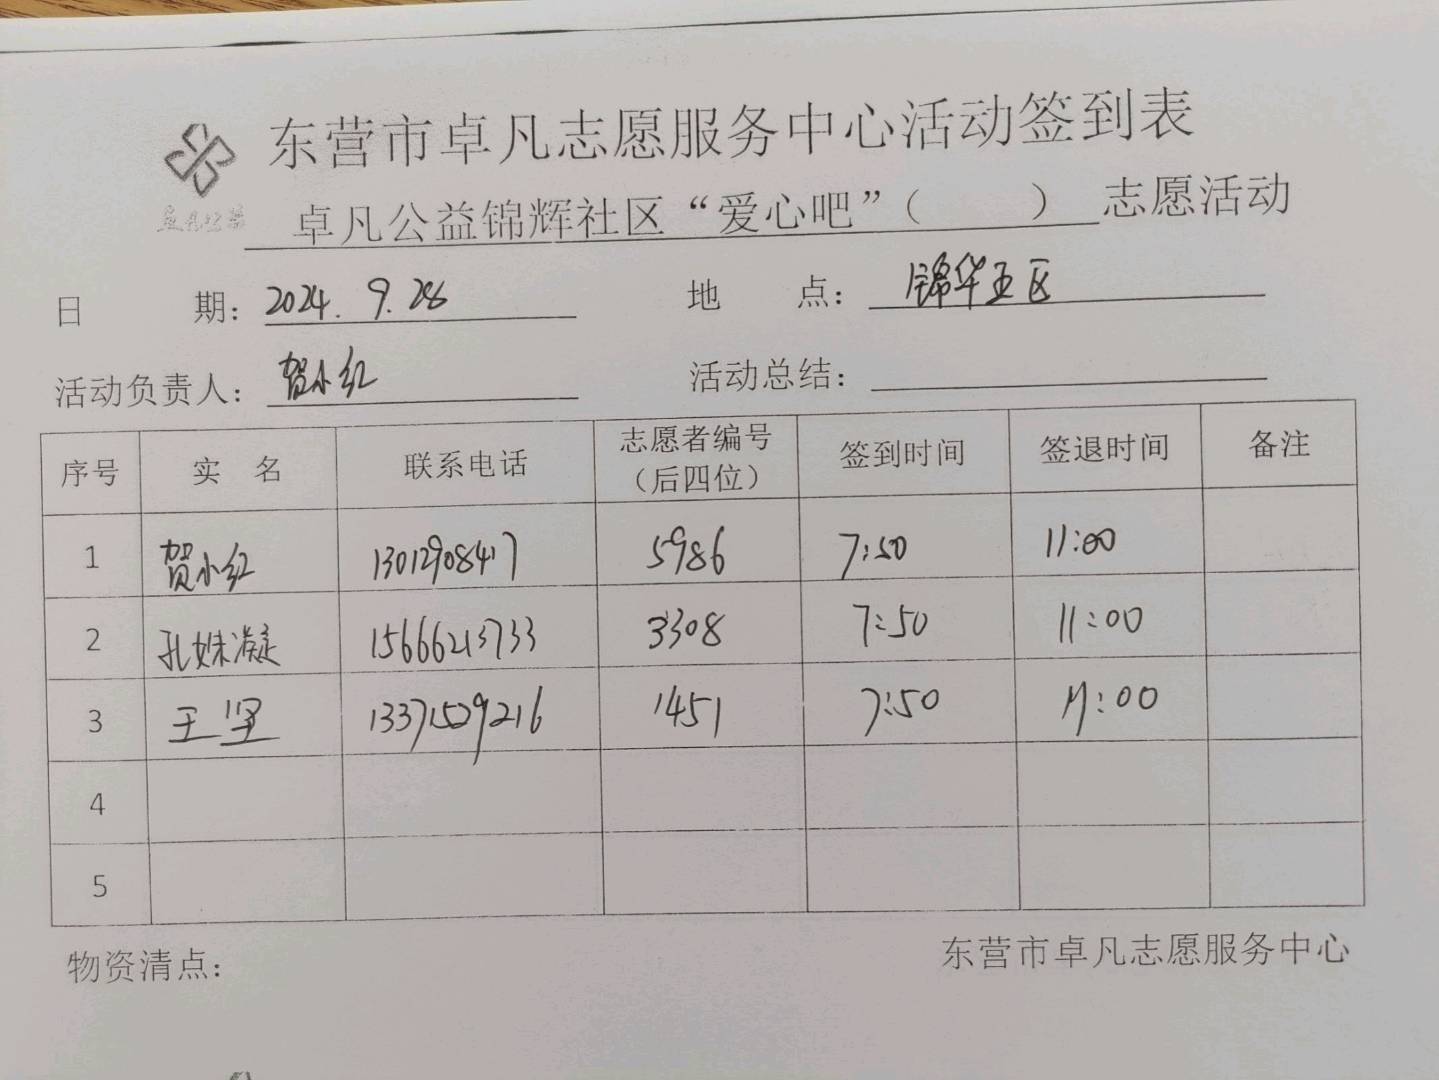 东营市卓凡志愿服务中心活动签到表
卓凡公益
卓凡公益锦辉社区“爱心吧”（ ）志愿活动
日 期：2024.9.28 地 点：锦华五区
活动负责人：贺小红 活动总结：
序号 实 名 联系电话 志愿者编号（后四位） 签到时间 签退时间 备注
1 贺小红 13012908417 5986 7:50 11:00
2 孔姝凝 15666213733 3308 7:50 11:00
3 王坚 13371529216 1451 7:50 11:00
4
5
物资清点： 东营市卓凡志愿服务中心